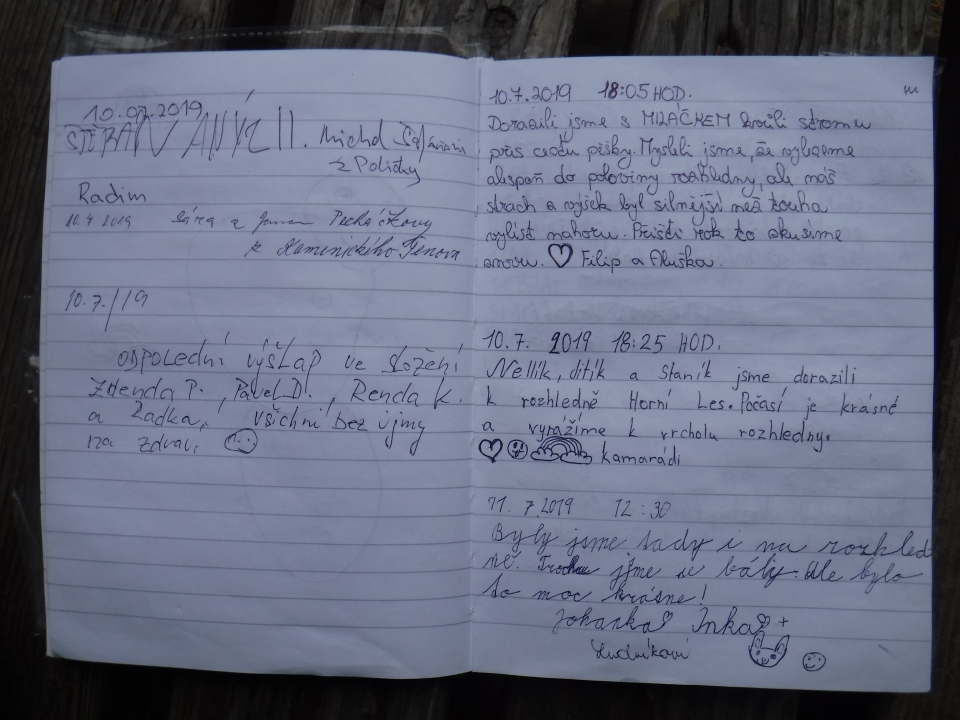 10.07.2019
ŠTĚPÁN ANÝZ II. Michal
z Poličky
Radim
10.7 2019 Sára z Jana
z Kamenického Šenova
10.7./19
ODPOLEDNÍ VÝŠLAP VE SLOŽENÍ
Zdenda P., Pavel D., Renda K.
a Radka, všichni bez újmy
na zdraví
10.7.2019 18:05 HOD.
Dorazili jsme s MILÁČKEM kvůli stromu
přes cestu pěšky. Mysleli jsme, že vylezeme
alespoň do poloviny rozhledny, ale náš
strach z výšek byl silnější než touha
vylést nahoru. Příští rok to zkusíme
znovu. Filip a Aluška.
10.7. 2019 18:25 HOD.
Nellík, ditík a Staník jsme dorazili
k rozhledně Horní Les. Počasí je krásné
a vyrážíme k vrcholu rozhledny.
kamarádi
11. 7. 2019 12:30
Byly jsme tady i na rozhled
ně. Trochu jsme se bály. Ale bylo
to moc krásne!
Johanka Inka +